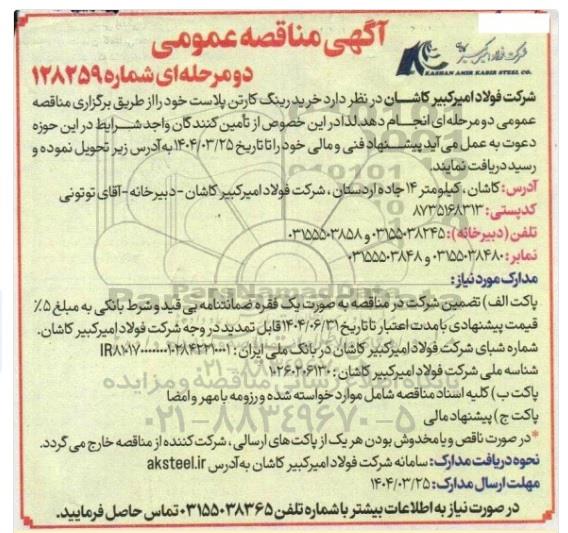 آگهی مناقصه عمومی
دو مرحله‌ای شماره ۱۲۸۲۵۹
شرکت فولاد امیرکبیر کاشان
KASHAN AMIR KABIR STEEL CO.
شرکت فولاد امیرکبیر کاشـــان در نظر دارد خرید رینگ کارتن پلاست خود را از طریق برگزاری مناقصه
عمومی دو مرحله‌ای انجـــام دهد.لذا در این خصوص از تأمین کنندگان واجد شــرایط در این حوزه
دعوت به عمل می آید پیشــنهاد فنی و مالی خود را تا تاریخ ۱۴۰۴/۰۳/۲۵ به آدرس زیر تحویل نموده و
رسید دریافت نمایند.
آدرس: کاشان ، کیلومتر ۱۴ جاده اردستان ، شرکت فولاد امیرکبیر کاشان -دبیرخانه -آقای توتونی
کدپستی: ۸۷۳۵۱۶۸۳۱۳
تلفن (دبیرخانه): ۰۳۱۵۵۰۳۸۲۴۵ و ۰۳۱۵۵۵۰۳۸۵۸
نمابر: ۰۳۱۵۵۰۳۸۴۸۰ و ۰۳۱۵۵۵۰۳۸۴۸
مدارک مورد نیاز:
پاکت الف) تضمین شرکت در مناقصه به صورت یک فقره ضمانتنامه بی قید و شرط بانکی به مبلغ ۵٪
قیمت پیشنهادی با مدت اعتبار تا تاریخ ۱۴۰۴/۰۶/۳۱ قابل تمدید در وجه شرکت فولاد امیرکبیر کاشان.
شماره شبای شرکت فولاد امیرکبیر کاشان در بانک ملی ایران :
شناسه ملی شرکت فولاد امیرکبیر کاشان : ۱۰۲۶۰۲۰۶۱۳۰
پاکت ب) کلیه اسناد مناقصه شامل موارد خواسته شده و رزومه با مهر و امضا
پاکت ج) پیشنهاد مالی
*در صورت ناقص و یا مخدوش بودن هر یک از پاکت‌های ارسالی ، شرکت کننده از مناقصه خارج می گردد.
نحوه دریافت مدارک: سامانه شرکت فولاد امیرکبیر کاشان به آدرس aksteel.ir
مهلت ارسال مدارک: ۱۴۰۴/۰۳/۲۵
در صورت نیاز به اطلاعات بیشتر با شماره تلفن ۰۳۱۵۵۰۳۸۳۶۵ تماس حاصل فرمایید.
ParsNamadData
پایگاه اطلاع رسانی مناقصه و مزایده
۰۲۱-۸۸۳۴۹۶۷۰-۵